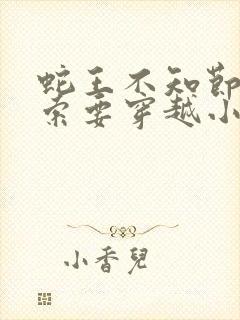 蛇王不知節
索要穿越小
小香兒